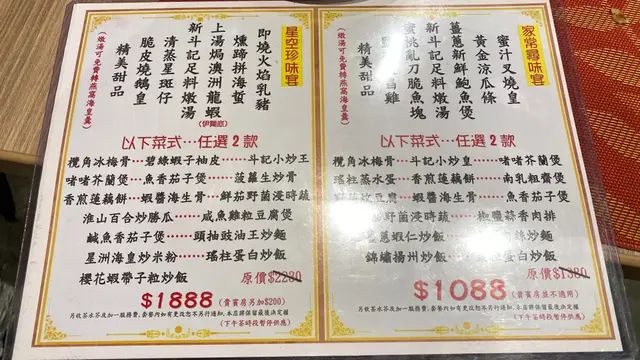 星空珍味宴
即燒火焰乳豬
燻蹄拼海蜇
上湯焗澳洲龍蝦
(伊麵底)
新斗記足料燉湯
清蒸星斑仔
脆皮燒鵝皇
精美甜品
(燉湯可免費轉燕窩海皇羹)
以下菜式…任選2款
欖角冰梅骨…碧綠蝦子柚皮……斗記小炒王
啫啫芥蘭煲…魚香茄子煲……菠蘿生炒骨
香煎蓮藕餅…蝦醬海生骨…鮮茄野菌浸時蔬
淮山百合炒勝瓜……咸魚雞粒豆腐煲
鹹魚香茄子煲……頭抽豉油王炒麵
星洲海皇炒米粉……瑤柱蛋白炒飯
櫻花蝦帶子粒炒飯
原價$2280
$1888(貴賓房另加$200)
另收茶水芥及加一服務費,套餐內如有更改恕不另行通知,本店將保留最後決定權
(下午茶時段暫停供應)
家常尋味宴
蜜汁叉燒皇
黃金涼瓜條
薑蔥新鮮鮑魚煲
新斗記足料燉湯
蜜桃亂刀脆魚塊
雞
精美甜品
(燉湯可免費轉燕窩海皇羹)
以下菜式…任選2款
欖角冰梅骨……斗記小炒皇……啫啫芥蘭煲
瑤柱蒸水蛋…香煎蓮藕餅…南乳粗齋煲
豆腐…蝦醬海生骨……魚香茄子煲
野菌浸時蔬……椒鹽蒜香肉排
蔥蝦仁炒飯……絲炒麵
錦繡揚州炒飯……瑤柱蛋白炒飯
原價$1380
$1088(貴賓房並不適用)
另收茶水芥及加一服務費,套餐內如有更改恕不另行通知,本店將保留最後決定權
(下午茶時段暫停供應)